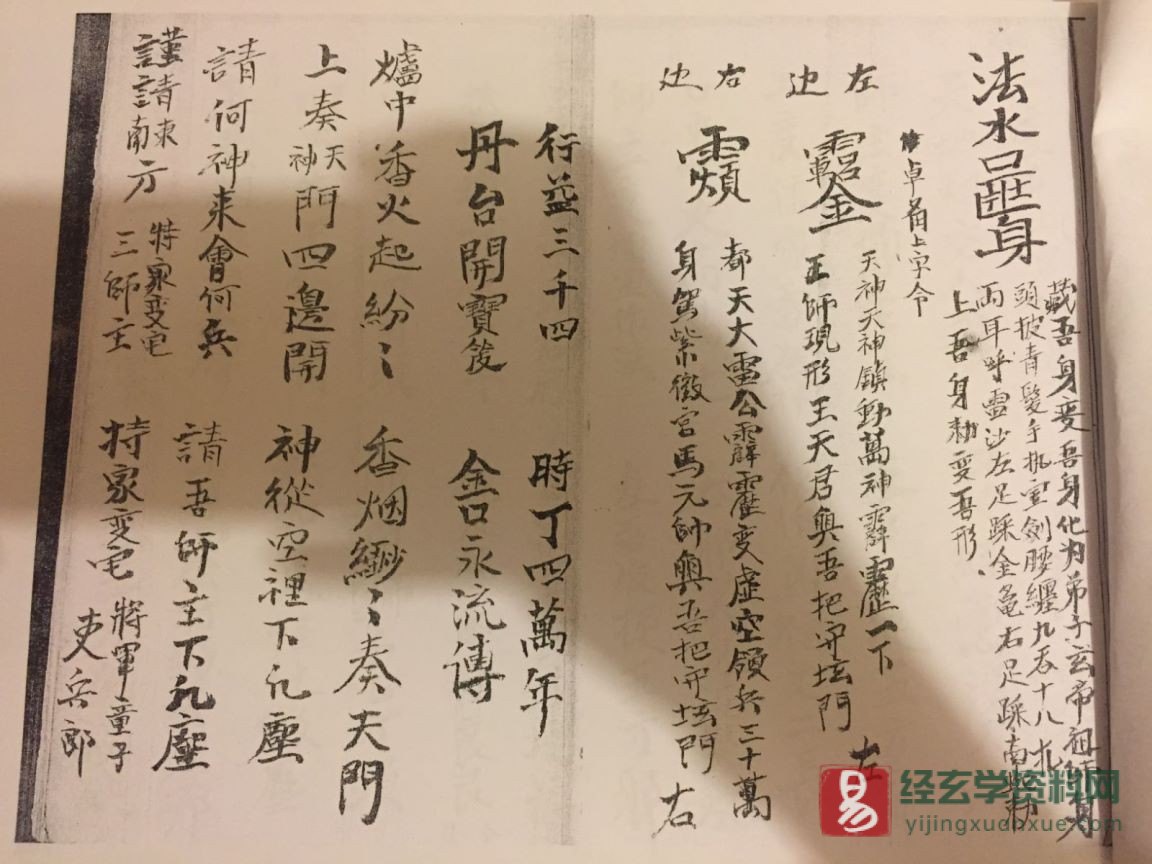 法水匨身
藏吾身变吾身化为弟子玄帝祖師身
頭披青髮手执宝劍腰纏九吞十八
両耳呼雷沙左足踩金龟右足踩南蛇
上吾身勅变吾形
卓前上字令
左边
天神天神鎮動萬神霹靂一下
王師現形王天君與吾把守坛門 左
右边
都天大雷公霹靂变虚空領兵三十萬
身駕紫微宮馬元帥與吾把守坛門 右
行益三千四 時丁四萬年
丹台開寶後 金口永流傳
爐中香火起紛〻 香烟緲〻奏天門
上奏天神門四邊開 神從空裡下凡塵
請何神来會何兵 請吾師主下凡塵
謹請東南方三師主 特家变宅
持家变宅 將軍童子 吏兵郎
易 经玄学资料网
yijingxuanxue.com